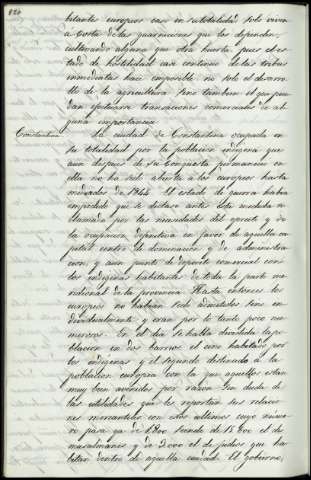 bitantes europeos casi en su totalidad solo viven
a costa de las guarniciones que los defienden,
cultivando alguna que otra huerta pues el es-
tado de hostilidad casi continuo de las tribus
inmediatas hace imposible no solo el desarro-
llo de la agricultura sino tambien el que pue-
dan efectuarse transaciones comerciales de al-
guna importancia
Constantina
La ciudad de Constantina ocupada en
su totalidad por la poblacion indigena que
aun despues de su conquista permanecio en
ella no ha sido abierta a los europeos hasta
mediados de 1844. El estado de guerra habia
impedido que se dictase antes esta medida re-
clamada por las necesidades del egercito y de
la ocupacion definitiva en favor de aquella ca-
pital centro de dominacion y de administra-
cion, y aun punto de deposito comercial con
los indigenas habitantes de toda la parte me-
ridional de la provincia. Hasta entonces los
europeos no habian sido admitidos sino in-
dividualmente y eran por lo tanto poco nu-
merosos. En el dia se halla dividida la po-
blacion en dos barrios el uno habitado por
los indigenas y el segundo destinado a la
poblacion europea con la que aquellos estan
muy bien avenidos por razon sin duda de
las utilidades que les reportan sus relacio-
nes mercantiles con estos ultimos cuyo nume-
ro pasa ya de 1.800 siendo de 15.800 el de
musulmanes y de 3.000 el de judios que ha-
bitan dentro de aquella ciudad. El gobierno,